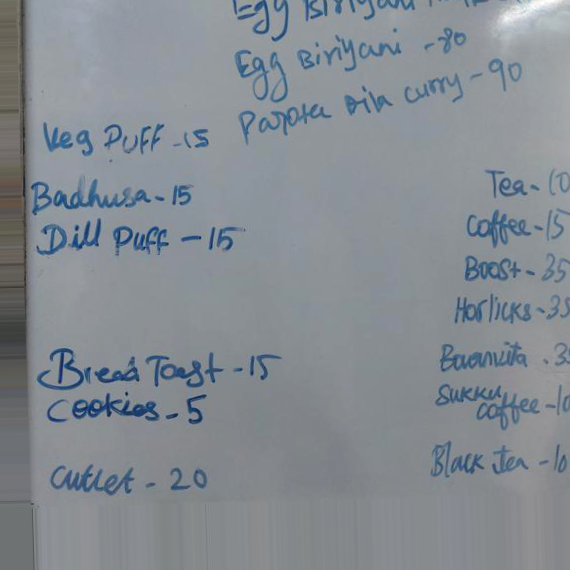 Egg Biriyani
Egg Biriyani - 80
Parota with curry - 90
Veg PUFF - 15
Badhusa - 15
Dill Puff - 15
Bread Toast - 15
Cookies - 5
Cutlet - 20
Tea - 10
Coffee - 15
Boost - 35
Horlicks - 35
Bournvita - 35
Sukku
Coffee - 10
Black Tea - 10